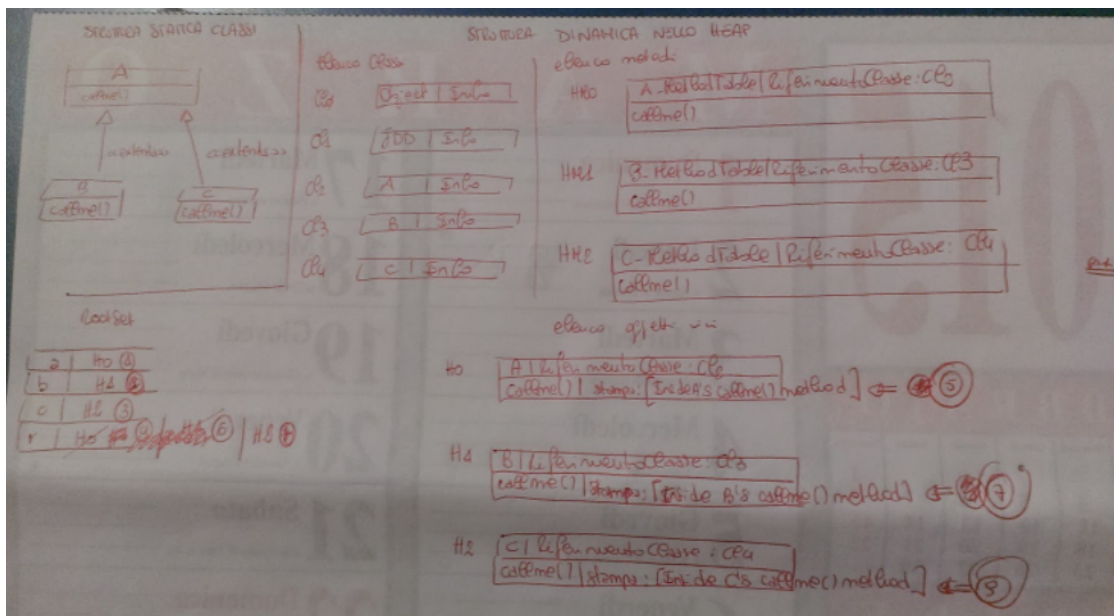 STRUTTURA STATICA CLASSI
STRUTTURA DINAMICA NELLO HEAP
A
callme()
<<extends>>
<<extends>>
B
callme()
C
callme()
elenco classi
Cl0
Object | Info
Cl1
JDD | Info
Cl2
A | Info
Cl3
B | Info
Cl4
C | Info
elenco metodi
HM0
A-MethodTable | Riferimento Classe: Cl2
callme()
HM1
B-MethodTable | Riferimento Classe: Cl3
callme()
HM2
C-MethodTable | Riferimento Classe: Cl4
callme()
RootSet
a | H0
b | H1
c | H2 3
r | H0 6 | H2
elenco oggetti vivi
H0
A | Riferimento Classe: Cl2
callme() | stampa: [Inside A's callme() method] 5
H1
B | Riferimento Classe: Cl3
callme() | stampa: [Inside B's callme() method] 7
H2
C | Riferimento Classe: Cl4
callme() | stampa: [Inside C's callme() method]